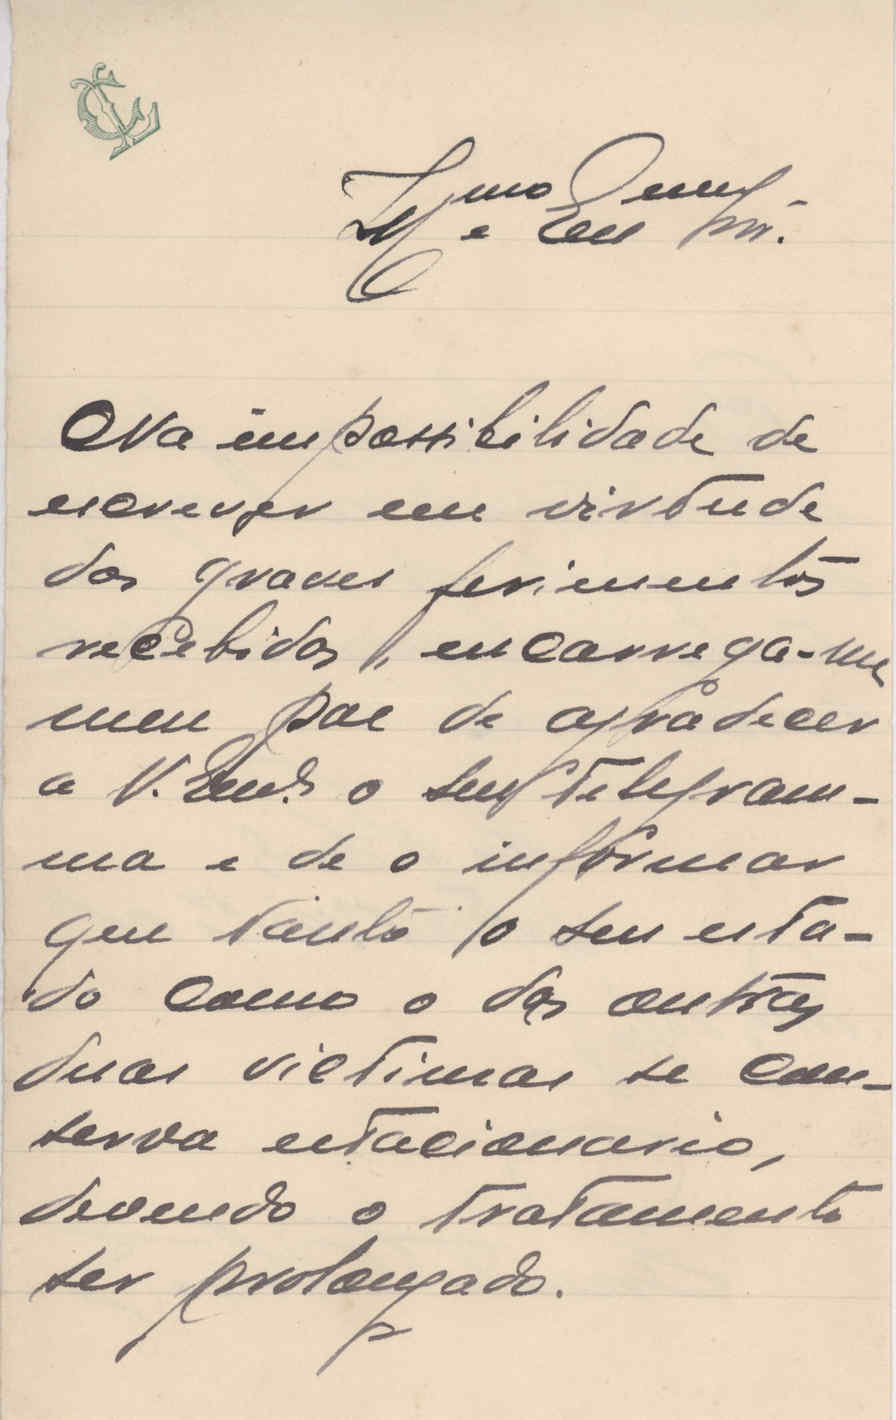 CL
Illmo e Exmo Snr.
Na impossibilidade de
escrever em virtude
dos graves ferimentos
recebidos, encarrega-me
meu pae de agradecer
a V. Excia o seu telegram-
ma e de o informar
que tanto o seu esta-
do como o das outras
duas victimas se con-
serva estacionario,
devendo o tratamento
ser prolongado.